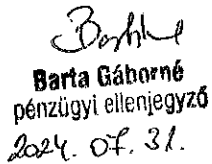 Barta Gáborné
pénzügyi ellenjegyző
2024. 07. 31.